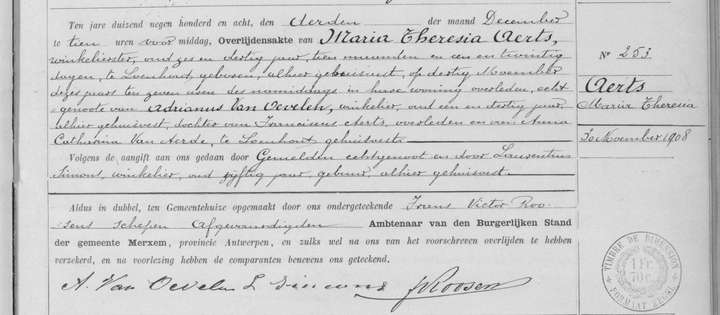 Ten jare duizend negen honderd en acht, den derden der maand December
te tien uren voor middag, Overlijdensakte van Maria Theresia Aerts,
winkelierster, oud zes en dertig jaar, tien maanden en een en twintig
dagen, te Loenhout geboren, alhier gehuisvest, op dertig November
dezes jaars ten zeven uren des namiddags in hare woning overleden, echt-
genoote van Adrianus Van Oevelen, winkelier, oud een en dertig jaar,
alhier gehuisvest, dochter van Franciscus Aerts, overleden en van Anna
Catharina Van Aerde, te Loenhout gehuisvest.
Volgens de aangift aan ons gedaan door Gemelden echtgenoot en door Laurentius
Simons, winkelier, oud vijftig jaar, gebuur, alhier gehuisvest.
Aldus in dubbel, ten Gemeentehuize opgemaakt door ons ondergeteekende Victor Roo-
sens Schepen Afgevaardigden Ambtenaar van den Burgerlijken Stand
der gemeente Merxem, provincie Antwerpen, en zulks wel na ons van het voorschreven overlijden te hebben
verzekerd, en na voorlezing hebben de comparanten benevens ons geteekend.
A. Van Oevelen L. Simons Roosens
Nr 253
Aerts
Maria Theresia
30 November 1908
TIMBRE DE DIMENSION
1 Fr.
70 C.
FORMAAT ZEGEL